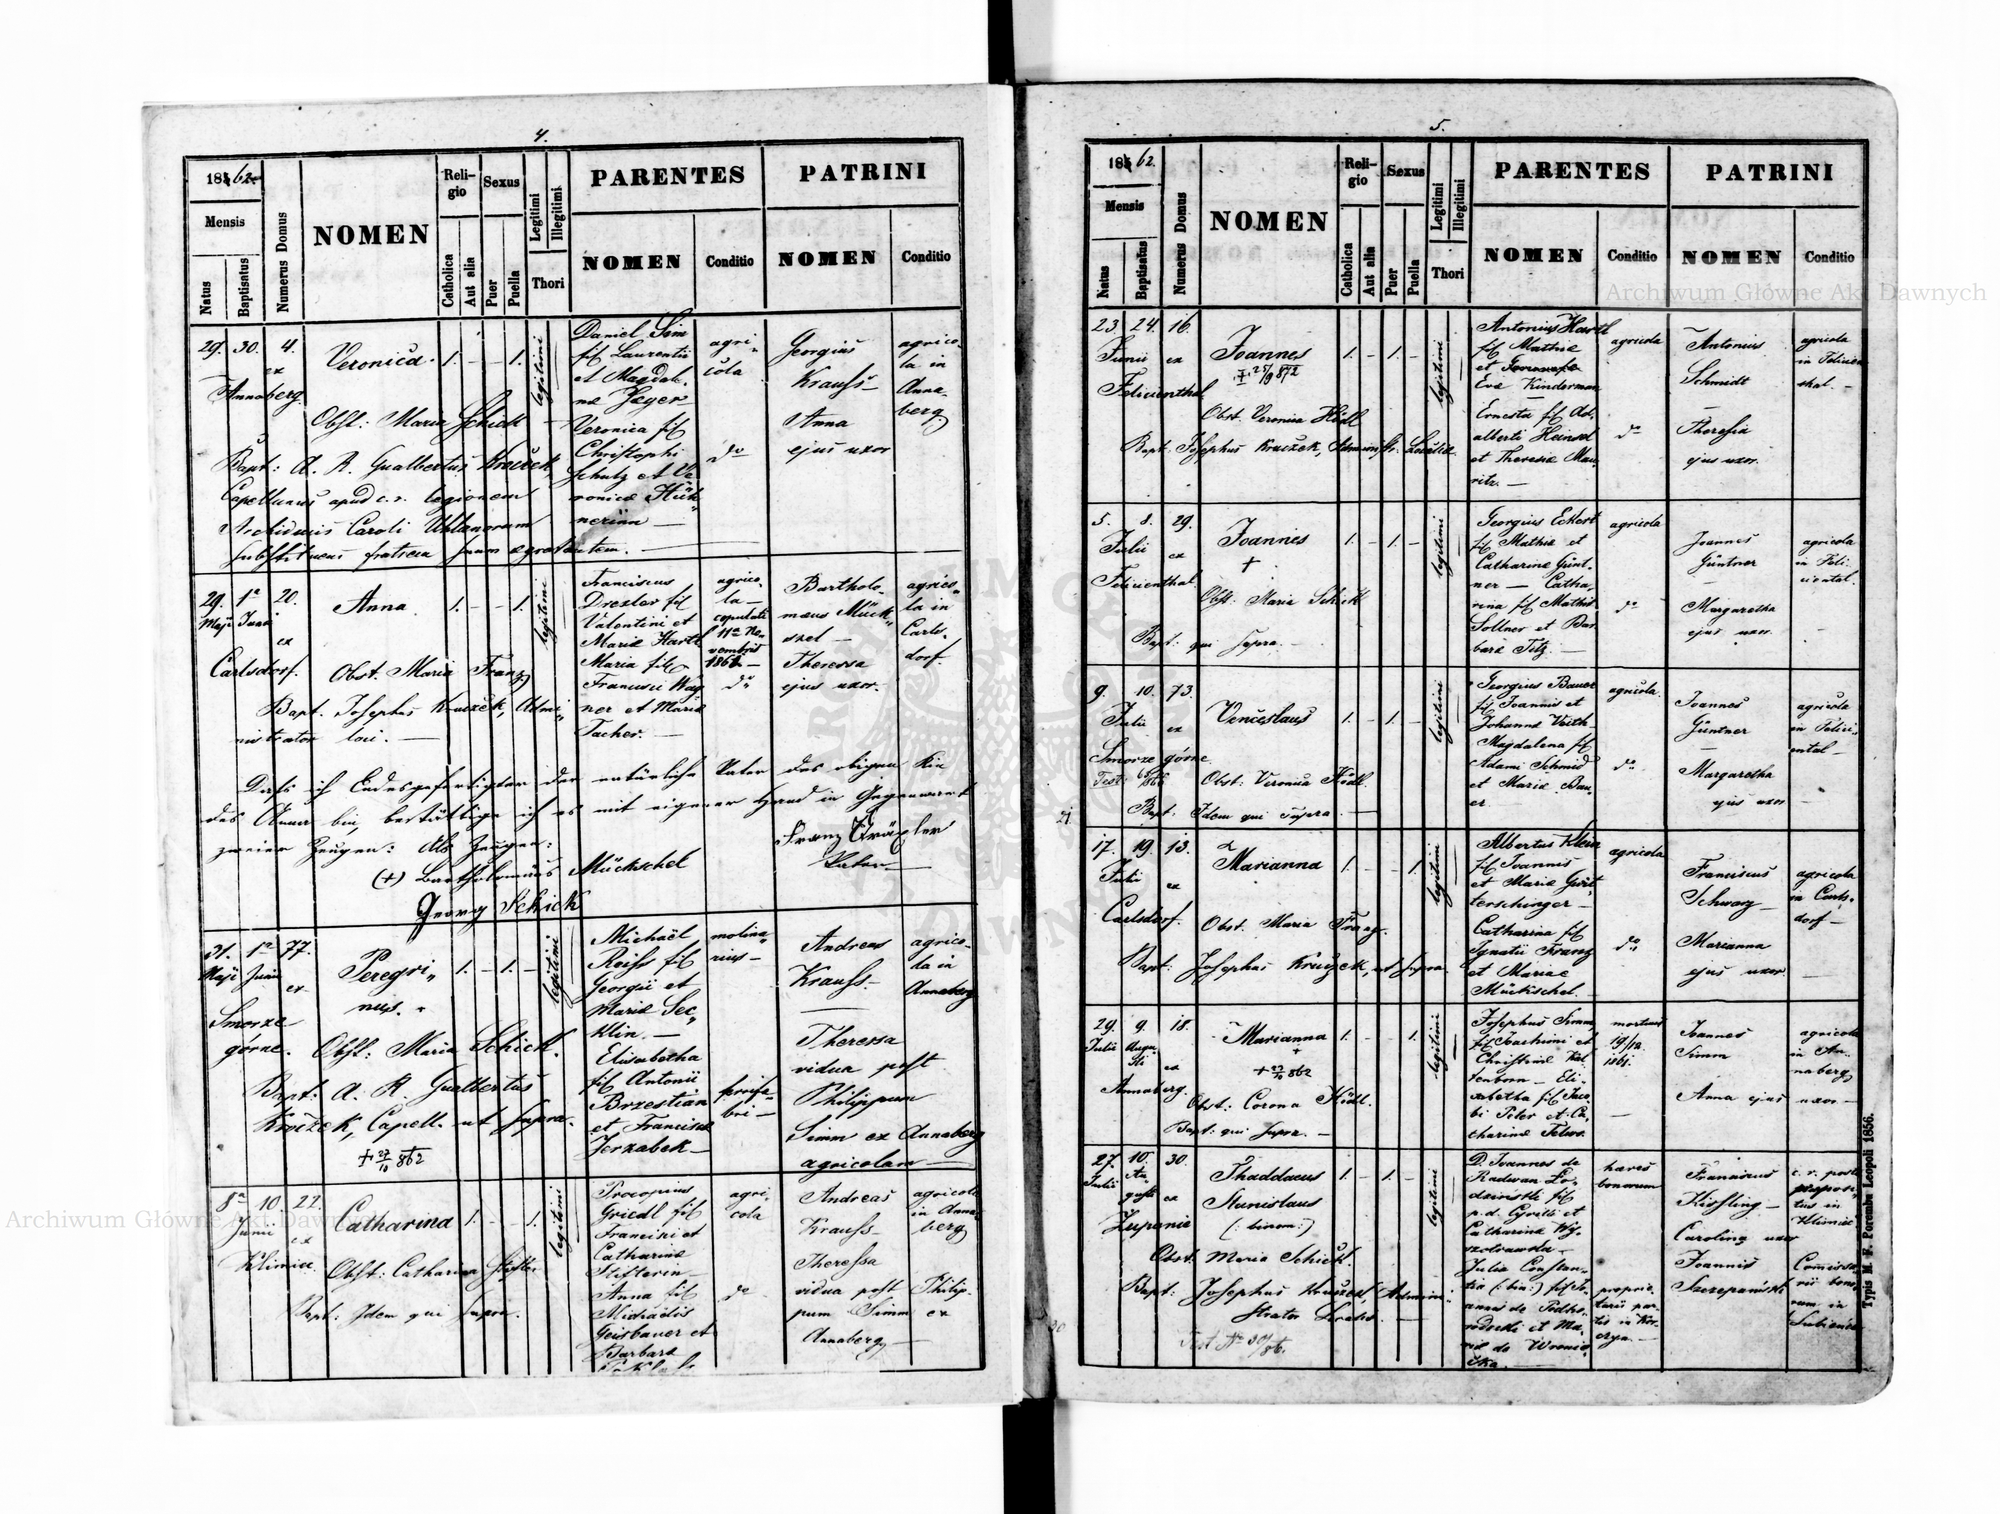 4.
1862
Mensis
Natus
Baptisatus
Numerus Domus
NOMEN
Religio
Catholica
Aut alia
Sexus
Puer
Puella
Legitimi
Illegitimi
Thori
PARENTES
NOMEN
Conditio
PATRINI
NOMEN
Conditio
29. 30. 4.
ex
Annaberg
Veronica
1. – – 1.
legitimi
Obst: Maria Schick
Bapt: A. R. Gualbertus Krużek
Capellanus apud c. r. legionem
Archiducis Caroli Uhlanorum
substituens fratrem suum egrotantem.
Daniel Sim
fil Laurentii
et Magdale
na Jeger
Veronica fil
Christophi
Schutz et Ve
ronica
agri-
cola
do
Georgius
Krauss
Anna
ejus uxor
agrico-
la in
Anna-
berg
29. 1a 20.
Maji Junii
ex
Carlsdorf.
Anna
1. – – 1.
legitimi
Obst. Maria Franz
Bapt. Josephus Kruczek, Admi-
nistrator loci.
Franciscus
Drexler fil
Valentini et
Maria Hartl
Maria fil
Francisci Wag
ner et Maria
Tacher.
agrico-
la –
copulati
11a No-
vembris
1862 –
do
Bartholo-
maeus Mück-
schel –
Theressa
ejus uxor.
agrico-
la in
Carls-
dorf.
Dass ich Endesgefertigter der natürliche Vater des obigen Kin
des Anna bin, bestättige ich es mit eigener Hand in Gegenwart
zweier Zeugen: Als Zeugen:
Franz Träxler
Vater
(+) Bartholomäus Mückschel
Georg Schick
31. 1a 77.
Maji Junii ex
Smorze
górne.
Peregri-
nus.
1. – 1. –
legitimi
Obst: Maria Schick.
Bapt: A. R. Gualbertus
Krużek, Capell. ut supra.
+ 27/10 862
Michaël
Reiss fil
Georgii et
Maria Sec-
klin. –
Elisabetha
fil Antonii
Brzestian
et Francisca
Jerzabek –
molina-
rius –
Andreas
Krauss –
Theressa
vidua post
Philippum
Simm ex Annaberg
agricolam
agrico-
la in
Annaberg
8a 10 22.
Junii ex
Klimiec
Catharina
1. – – 1.
legitimi
Obst: Catharina Stifter
Bapt: Idem qui supra.
Procopius
Griedl fil
Francisci et
Catharina
Stifterin
Anna fil
Michaelis
Geisbauer et
Barbara
agri-
cola
do
Andreas
Krauss
Theressa
vidua post Philip-
pum Simm ex
Annaberg
agricola
in Anna-
berg
5.
1862.
Mensis
Natus
Baptisatus
Numerus Domus
NOMEN
Religio
Catholica
Aut alia
Sexus
Puer
Puella
Legitimi
Illegitimi
Thori
PARENTES
NOMEN
Conditio
PATRINI
NOMEN
Conditio
23. 24. 16.
Junii ex
Felicienthal
Joannes
+ 25/9 872
1. – 1. –
legitimi
Obst. Veronica Hödl
Bapt. Josephus Kruczek, Administr. Localis
Antonius Hartl
fil Mathia
et
Eva Kinderman
Ernesta fil Ad-
alberti Heinzl
et Theresia Mau-
ritz. –
agricola
do
Antonius
Schmidt
Theresia
ejus uxor
agricola
in Felicien
thal. –
5. 8. 29.
Julii ex
Felicienthal.
Joannes
+
1. – 1. –
legitimi
Obst: Maria Schick
Bapt: qui supra. –
Georgius Eckert
fil Mathia et
Catharina Günt-
ner – Catha-
rina fil Mathia
Sollner et Bar-
bara Titz. –
agricola
do
Joannes
Güntner
Margaretha
ejus uxor
agricola
in Feli-
ciental.
9. 10. 73.
Julii ex
Smorze górne
Venceslaus
1. – 1. –
legitimi
Obst: Veronica Hödl
Bapt: Idem qui supra.
Georgius Bauer
fil Joannis et
Johanna Voith
Magdalena fil
Adami Schmid
et Maria Bau-
er
agricola.
do
Joannes
Güntner
Margaretha
ejus uxor
agricola
in Felici-
ental –
17. 19. 13.
Julii ex
Carlsdorf.
Marianna
1. – – 1.
legitimi
Obst. Maria Franz.
Bapt: Josephus Kruczek, ut supra.
Albertus Klein
fil Joannis
et Maria Gött
terschinger
Catharina fil
Ignatii Franz
et Mariae
Mückschel.
agricola
do
Franciscus
Schwarz –
Marianna
ejus uxor.
agricola
in Carls-
dorf –
29. 9. 18.
Julii Augu-
sti ex
Annaberg.
Marianna
+ 27/10 862
1. – – 1.
legitimi
Obst: Corona Hödl.
Bapt: qui supra. –
Josephus Simm
fil Joachimi et
Christina Kal
tenborn – Eli-
sabetha fil Jaco-
bi Piler et Ca-
tharina
mortuus
19/12
1861.
Joannes
Simm
Anna ejus uxor –
agricola
in An-
naberg
27. 10. 30.
Julii Au-
gusti ex
Żupanie
Thaddaeus
Stanislaus
(: binom :)
1. – 1. –
legitimi
Obst. Maria Schick.
Bapt: Josephus Kruczek, Admini-
strator Localis.
D. Joannes de
Radwan Ło-
dziński fil
p. d. Cyrilli et
Catharina Wy-
szotrawka –
Julia Constan-
tia (: bin :) fil Jo-
annis de Podho-
rodecki et Ma-
ria de Wronic-
ka.
haeres
bonorum
proprie-
tarii par-
tis in
Franciscus
Kissling –
Carolina uxor
Joannis
Szczepański
c. r. post
praeposi-
tus in
Klimiec
Comissa-
rii bono-
rum in
Typis M. F. Poremba Leopoli 1856.
Archiwum Główne Akt Dawnych
Archiwum Główne Akt Dawnych
ARCHIWUM GŁÓWNE AKT DAWNYCH